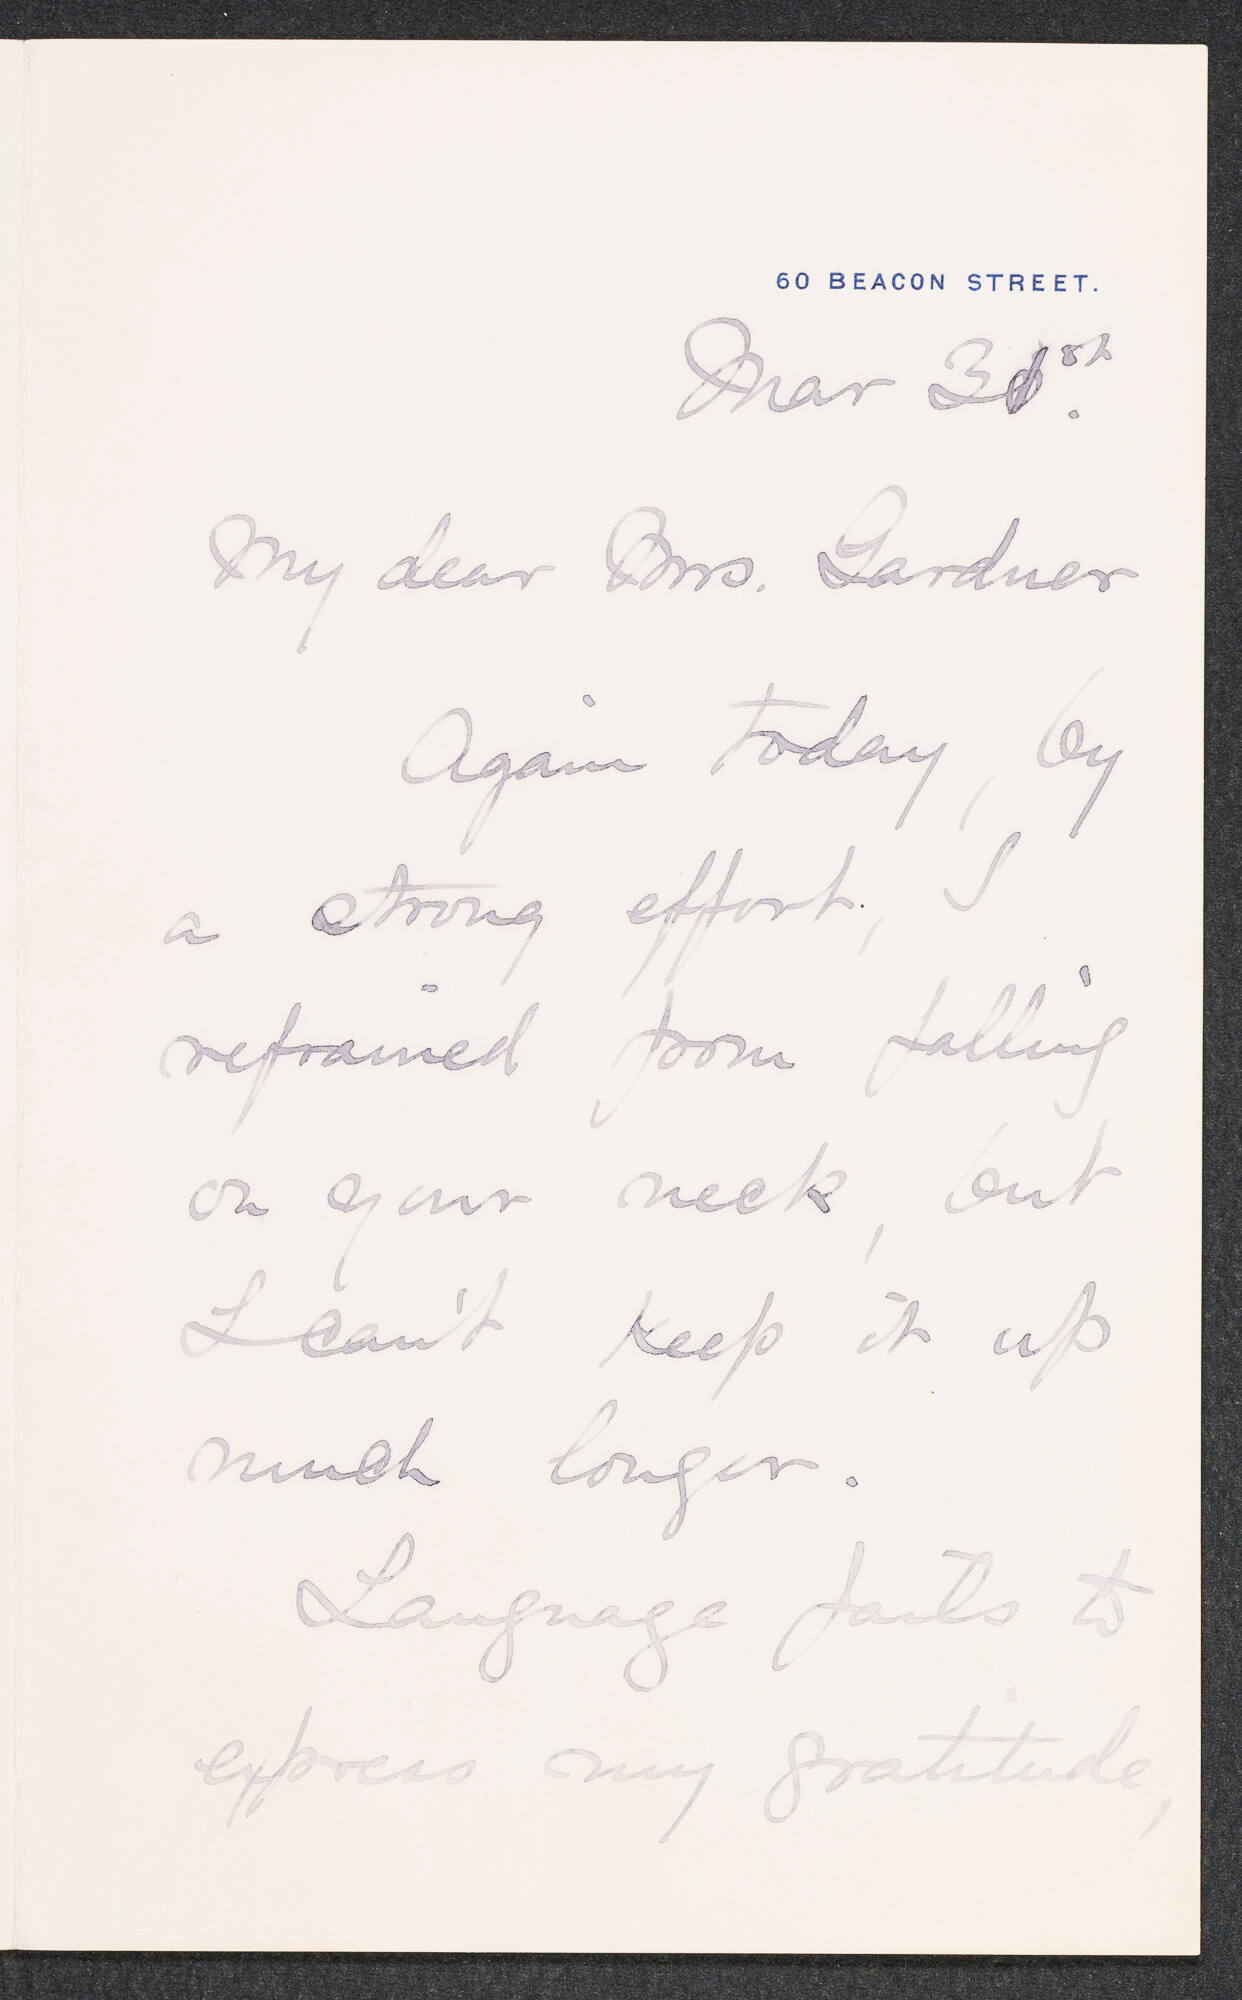 60 BEACON STREET.
Mar 31st.
My dear Mrs. Gardner
Again today, by
a strong effort, I
refrained from falling
on your neck, but
I can't keep it up
much longer.
Language fails to
express my gratitude,